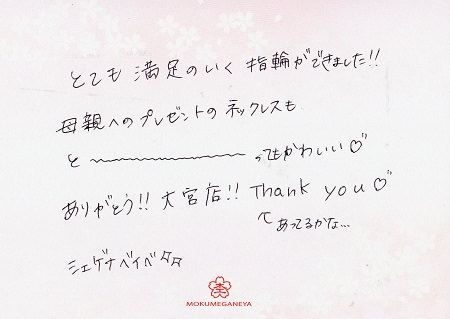 とても 満足のいく 指輪ができました!!
母親へのプレゼントの ネックレスも
と〜〜〜〜〜〜〜〜ってもかわいい♡
ありがとう!! 大宮店!! Thank you♡
↖あってるかな...
シェゲナベイベ
MOKUMEGANEYA